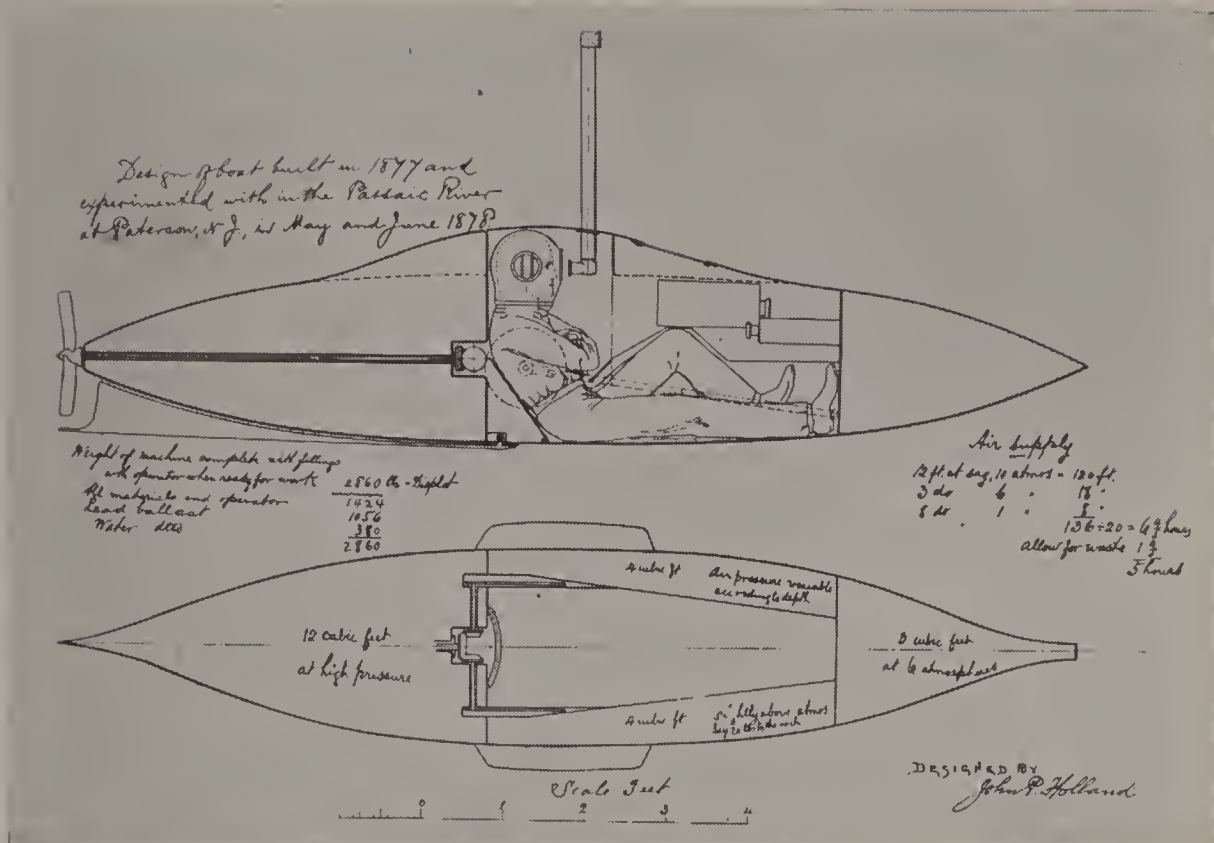 Design of boat built in 1877 and
experimented with in the Passaic River
at Paterson, N.J., in May and June 1878
Weight of machine complete with fittings
with operator when ready for work 2860 lbs =
All materials and operator 1424
Lead ballast 1056
Water ditto 380
2860
Air Supply
12 ft. at say, 10 atmos = 120 ft.
3 do 6 " 18 "
8 do " 1 " 8 "
136 ÷ 20 = 6 4/5 hours
allow for waste 1 4/5
5 hours
4 cubic ft Air pressure variable
according to depth
12 cubic feet
at high pressure
3 cubic feet
at 6 atmospheres
4 cubic ft Slightly above atmos
Say 20 lbs to the inch
Scale Feet
0 1 2 3 4
DESIGNED BY
John P. Holland